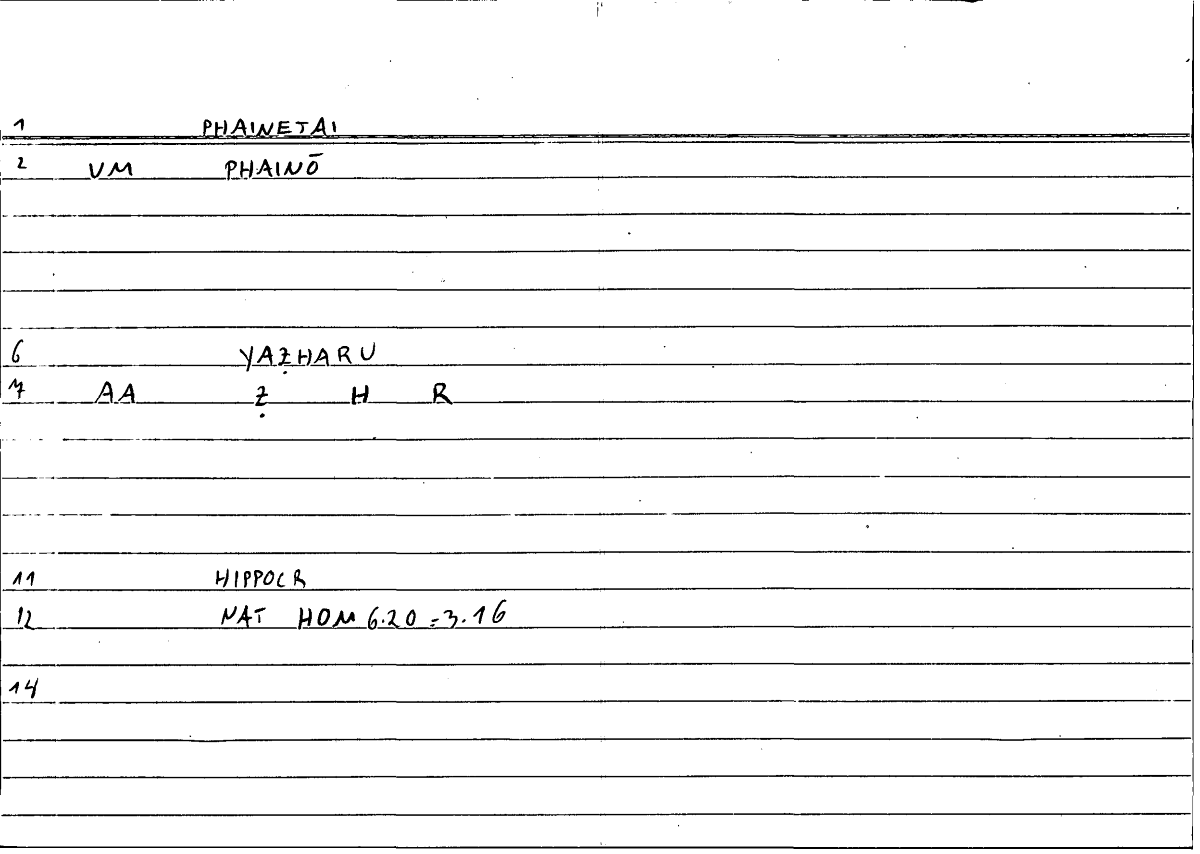 1 PHAINETAI
2 VM PHAINŌ
6 YAẒHARU
7 AA Ẓ H R
11 HIPPOCR
12 NAT HOM 6.20 = 3.16
14